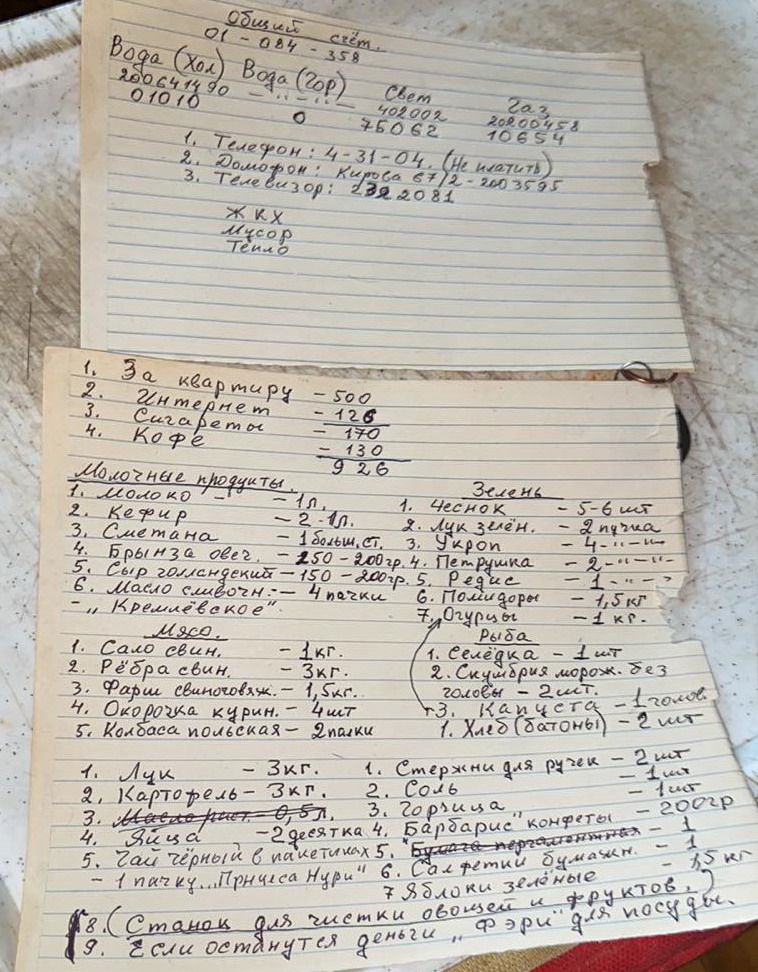 Общий счёт.
01 - 084 - 358
Вода (Хол) Вода (Гор) Свет Газ
200641490 - " - " - 402002 20200458
01010 0 75062 10654
1. Телефон: 4-31-04. (Не платить)
2. Домофон: Кирова 67/2 - 2003595
3. Телевизор: 2322081
ЖКХ
Мусор
Тепло
1. За квартиру - 500
2. Интернет - 126
3. Сигареты - 170
4. Кофе - 130
926
Молочные продукты.
1. Молоко - - 1л.
2. Кефир - 2-1л.
3. Сметана - 1 больш. ст.
4. Брынза овеч. - 250-200гр.
5. Сыр голландский - 150-200гр.
6. Масло сливочн. - 4 пачки
- „Кремлёвское".
Зелень
1. Чеснок - 5-6 шт
2. Лук зелён. - 2 пучка
3. Укроп - 4 -"-"-
4. Петрушка - 2 -"-"-
5. Редис - 1 -"-"-
6. Помидоры - 1,5 кг
7. Огурцы - 1 кг.
Мясо.
1. Сало свин. - 1кг.
2. Рёбра свин. - 3кг.
3. Фарш свиноговяж. - 1,5кг.
4. Окорочка курин. - 4шт
5. Колбаса польская - 2палки
Рыба
1. Селёдка - 1 шт
2. Скумбрия морож. без
головы - 2шт.
3. Капуста - 1голов.
1. Хлеб (батоны) - 2 шт
1. Лук - 3кг.
2. Картофель - 3кг.
3. Масло раст. - 0,5л.
4. Яйца - 2 десятка
5. Чай чёрный в пакетиках
- 1 пачку „Принцеса Нури"
1. Стержни для ручек - 2 шт
2. Соль - 1шт
3. Горчица - 1шт
4. Барбарис" конфеты - 200гр
5. "Бумага пергаментная - 1
6. Салфетки бумажн. - 1
7 Яблоки зелёные - 1,5 кг
8. (Станок для чистки овощей и фруктов.)
9. Если останутся деньги „Фэри" для посуды.